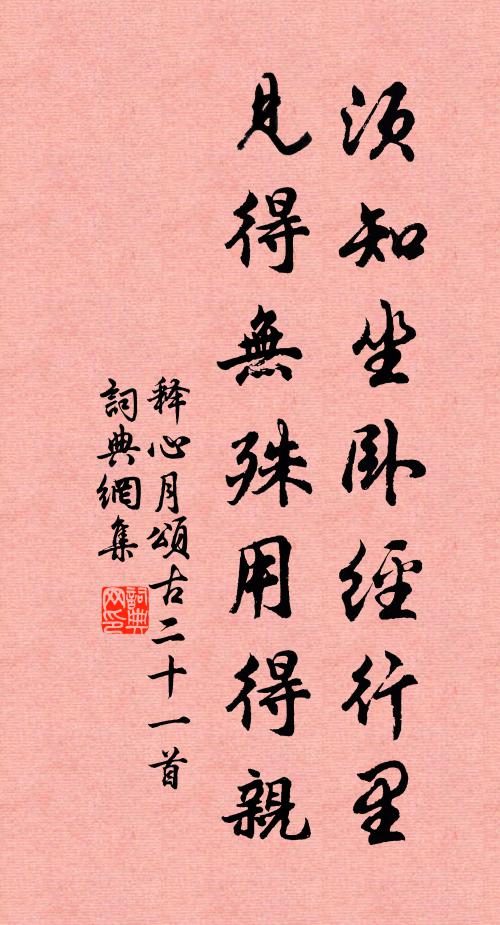 须知坐卧經行里
見得無殊用得親
释心月頌古二十一首
詞典網集
詞典网印